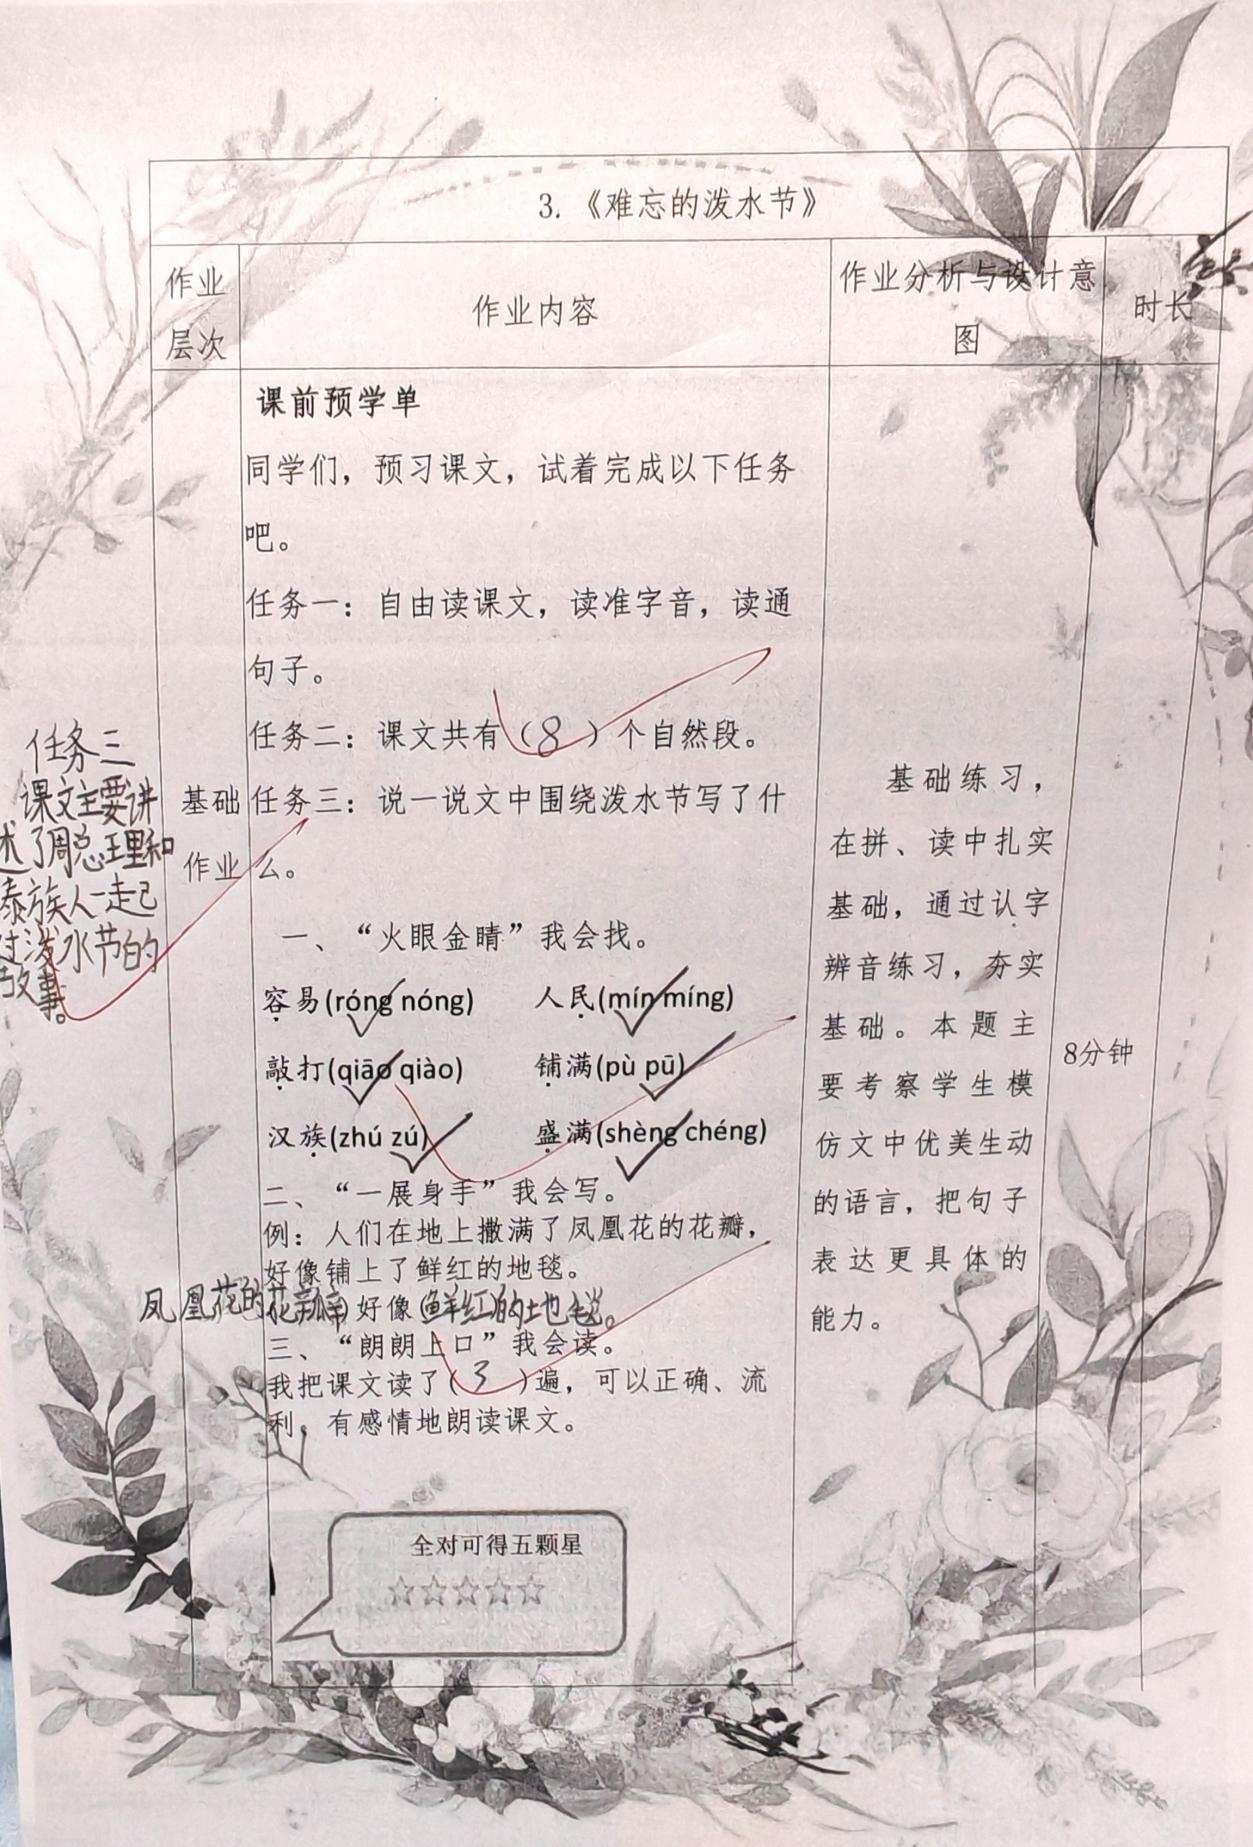 3.《难忘的泼水节》
作业
层次
作业内容
作业分析与设计意
图
时长
课前预学单
同学们，预习课文，试着完成以下任务
吧。
任务一：自由读课文，读准字音，读通
句子。
任务二：课文共有（8）个自然段。
任务三：说一说文中围绕泼水节写了什
么。
基础
作业
任务三
课文主要讲
述了周总理和
泰族人一走己
过泼水节的
故事。
一、“火眼金睛”我会找。
容易(róng nóng) 人民(mín míng)
敲打(qiāo qiào) 铺满(pù pū)
汉族(zhú zú) 盛满(shèng chéng)
二、“一展身手”我会写。
例：人们在地上撒满了凤凰花的花瓣，
好像铺上了鲜红的地毯。
凤凰花的花瓣)好像(鲜红)的地毯。
三、“朗朗上口”我会读。
我把课文读了(3)遍，可以正确、流
利。有感情地朗读课文。
全对可得五颗星
☆☆☆☆☆
基础练习，
在拼、读中扎实
基础，通过认字
辨音练习，夯实
基础。本题主
要考察学生模
仿文中优美生动
的语言，把句子
表达更具体的
能力。
8分钟